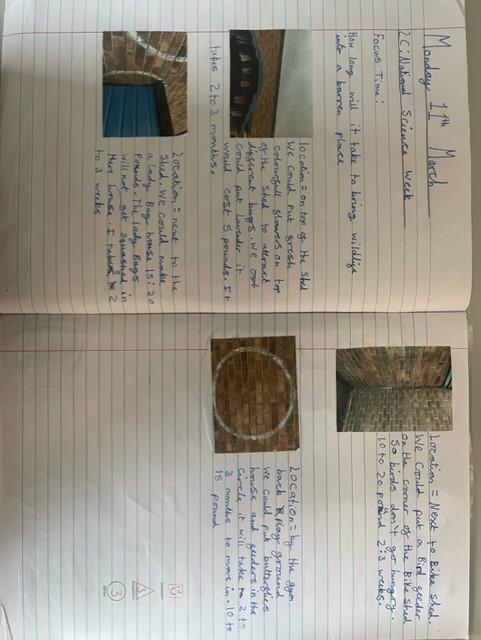 Monday 11th March
LC: National Science week
Focus Time:
How long will it take to bring wildlife
into a barren place
location = on top of the shed
We could put fresh
colourfull flowers on top
of the shed to attract
different bugs. We cost
could put lavender it
would cost 5 pounds. It
takes 2 to 3 months.
Location = next to the
shed. We could make
a lady Bug house 15: 20
Pounds. The lady Bugs
will not get squashed in
Here house. I takes to 2
to 3 weeks
Location = Next to Bike shed.
We Could put a Bird feeder
on the corner of the Bike shed
so birds don't go hungry.
10 to 20 pound 2:3 weeks.
Location = by the gym
back Play ground
We could put butterflies
house and feeders in the
circle it will take 2 to
3 months to more in. 10 to
15 pound
3